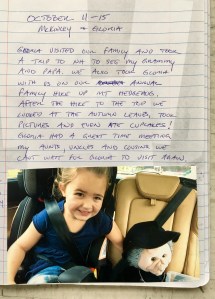 OCTOBER 11-15
McKINLEY & GLORIA
GLORIA VISITED OUR FAMILY AND TOOK
A TRIP TO N.H TO SEE MY GRAMMY
AND PAPA. WE ALSO TOOK GLORIA
WITH US ON OUR ANNUAL
FAMILY HIKE UP MT. HEDGEHOG.
AFTER THE HIKE TO THE TOP WE
LOOKED AT THE AUTUMN LEAVES, TOOK
PICTURES AND EVEN ATE CUPCAKES!
GLORIA HAD A GREAT TIME MEETING
MY AUNTS, UNCLES AND COUSINS. WE
CAN'T WAIT FOR GLORIA TO VISIT AGAIN.